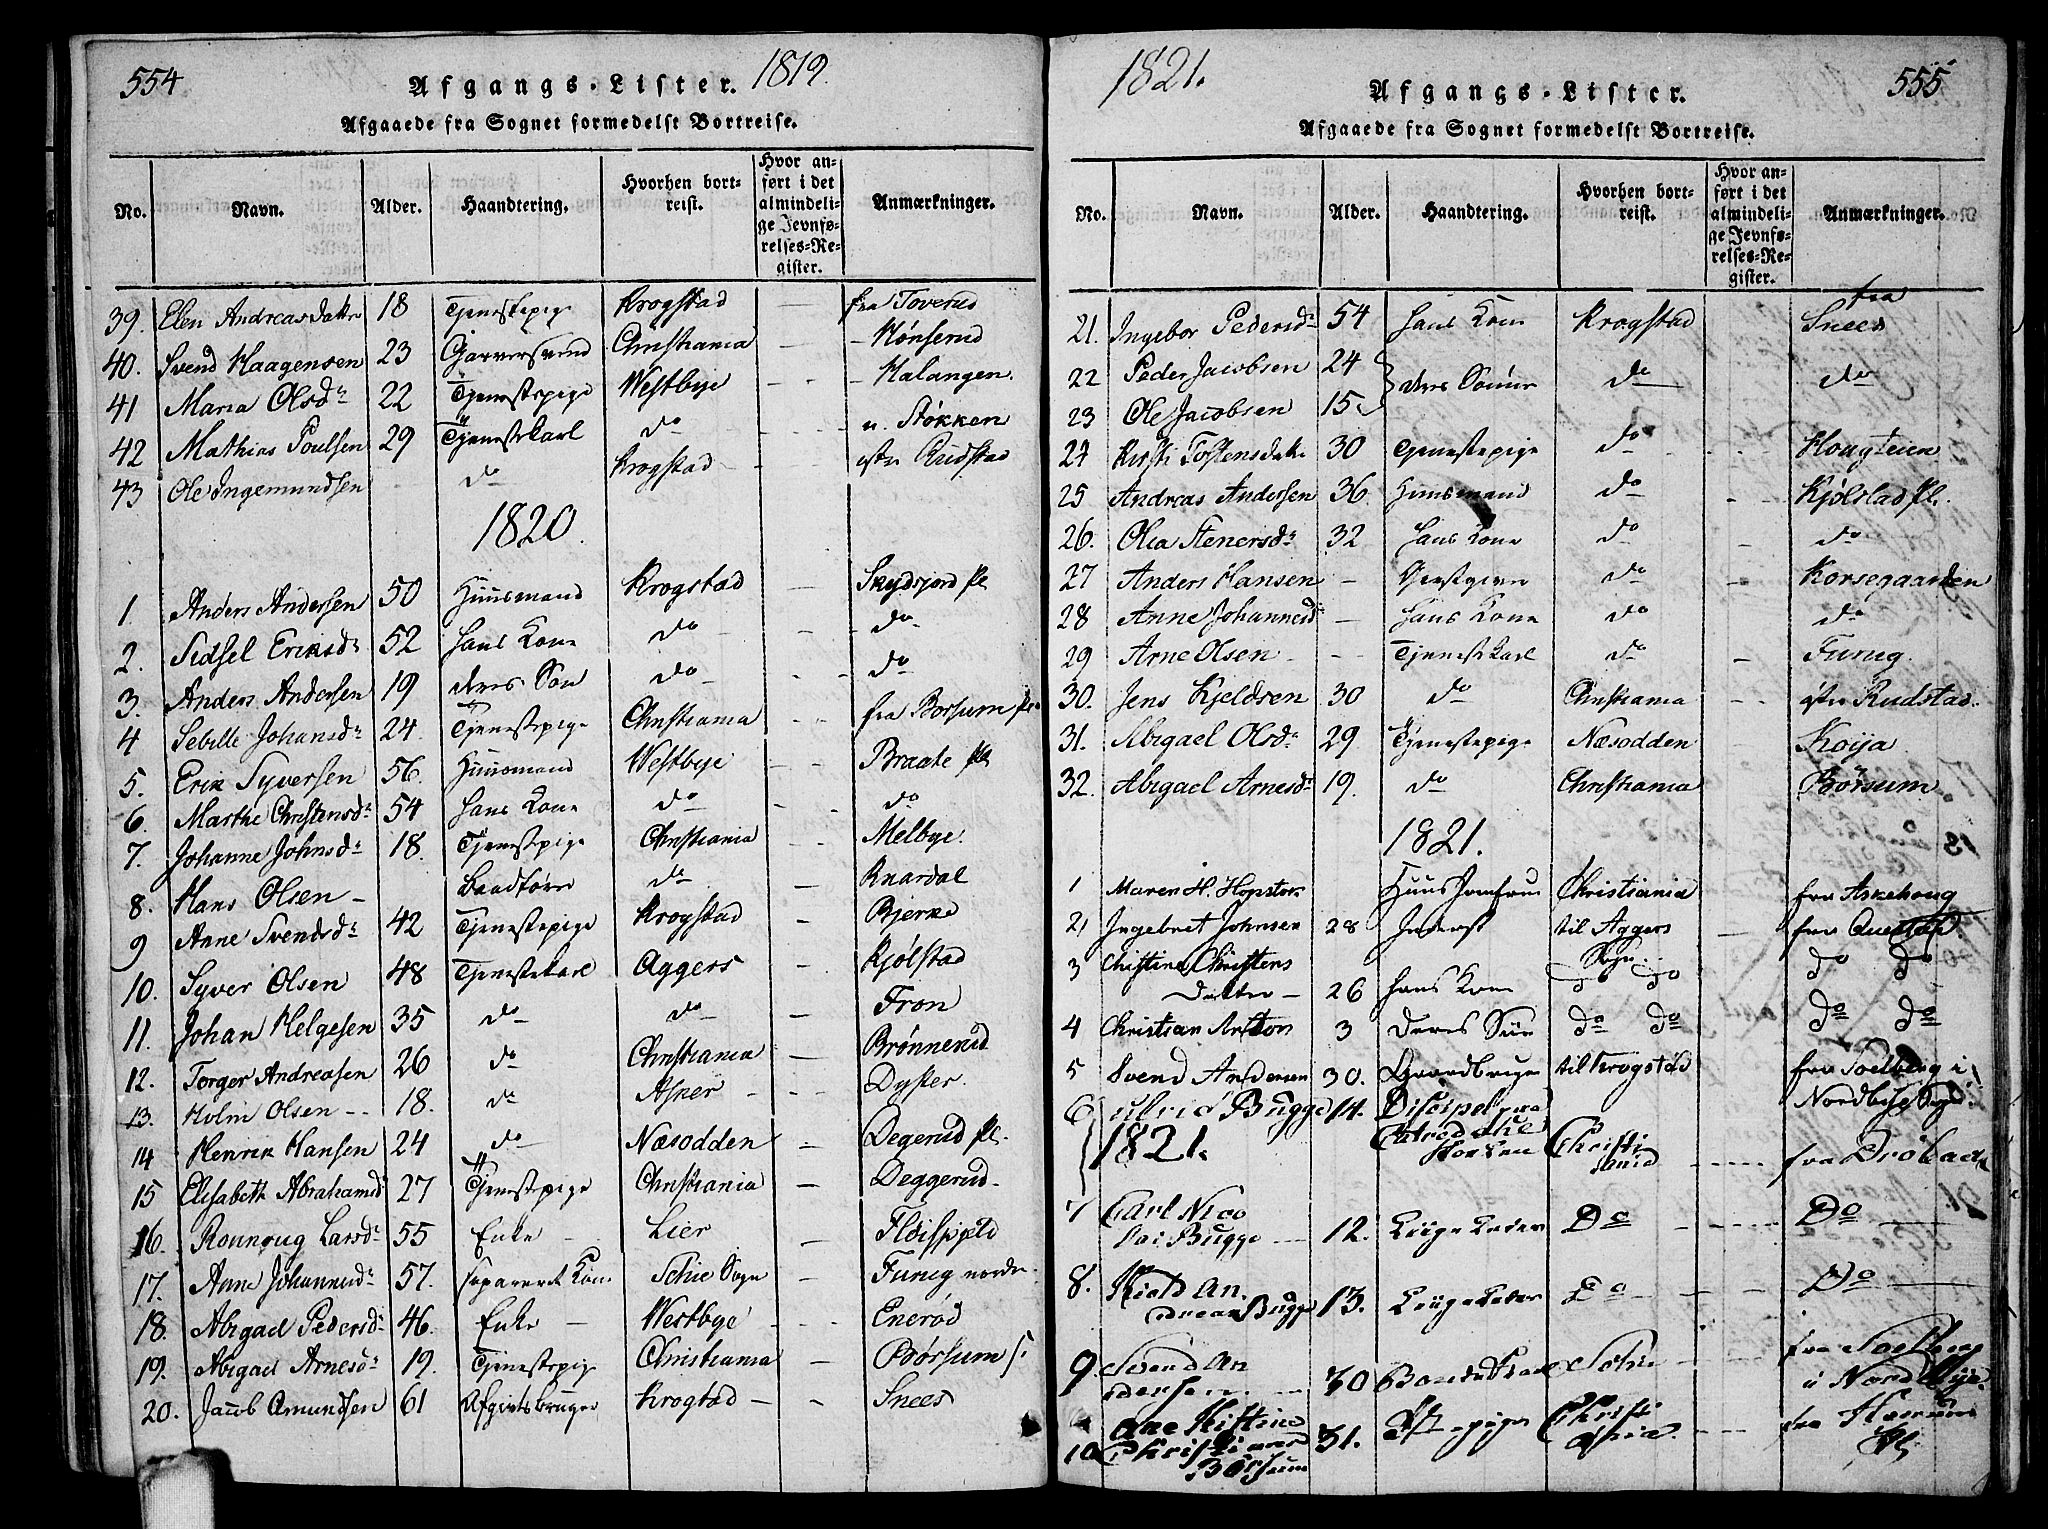 554 Afgangs-Lister. 1819.
Afgaaede fra Sognet formedelst Bortreise.
No. Navn. Alder. Haandtering. Hvorhen bortreist. Hvor anført i det almindelige Jevnførelses-Register. Anmærkninger.
39. Elen Andreasdatr 18 Tjenestepige Krogstad — fra Toverud
40. Svend Haagensen 23 Garversvend Christiania - - - Hønserud
41 Maria Olsdr 22 Tjenestepige Westbye - - - Halangen.
42 Mathias Poulsen 29 Tjenestekarl do - - - n. Støkken
43 Ole Ingemundsen - do Krogstad - - - østr Rudstad
1820.
1. Anders Andersen 50 Huusmand Krogstad — Skydsjord Pl
2. Sidsel Eriksdr 52 hans Kone do - - do
3. Anders Andersen 19 deres Søn do - - do
4 Sebille Johansdr 24. Tjenestepige Christiania - - fra Borsum Pl
5. Erik Syversen 56. Huusmand Westbye - - Braate Pl
6. Marthe Christensdr 54 hans Kone do - - do
7. Johanne Johnsdr 18. Tjenestepige Christiania - - Melbye.
8. Hans Olsen - do - Knardal
9 Anne Svendsdr 42 Tjenestepige Krogstad — Bjerke
10. Syver Olsen 48 Tjenestekarl Aggers — Kjølstad
11. Johan Helgesen 35 do do — Fron
12. Torger Andreasen 26 do Christiania — Brønnerud
13. Holm Olsen - - 18. do Asker — Dyster.
14 Henrik Hansen 24 do Næsodden — Degerud Pl.
15 Elisabeth Abrahamsd 27 Tjenestepige Christiania — Deggerud-
16. Ronnoug Larsdr 55 Enke - Lier — Fløispjeld
17. Anne Johannesdr 57. separeret Kone Schie Sogn — Furug nordre
18. Abigael Pedersdr 46. Enke — Westbye - - - Enerød
19. Abigael Arnesdr 19. Tjenestepige Christiania — Børsum
20. Jacob Amundsen 61 Afgivtsbruger Krogstad — - - Snees
1821. Afgangs-Lister. 555
Afgaaede fra Sognet formedelst Bortreise.
No. Navn. Alder. Haandtering. Hvorhen bortreist. Hvor anført i det almindelige Jevnførelses-Register. Anmærkninger.
21. Ingebor Pedersdr 54 hans Kone Krogstad — fra Snees
22 Peder Jacobsen 24 deres Sønner do do
23 Ole Jacobsen 15
24 Kirsti Tostensdatr 30 Tjenestepige do - - - Hougteien
25 Andreas Andersen 36 Huusmand do - - - Kjølstad Pl.
26. Olea Stenersdr 32 hans Kone do - do
27 Anders Hansen - do - Korsegaarden
28 Anne Johannesd - hans Kone do - do
29 Arne Olsen - - Tjenestekarl do - Furug.
30. Jens Kjeldsen 30 do Christiania - østr Rudstad.
31. Abigael Olsdr 29 Tjenestepige Næsodden - Koija
32. Abigael Arnesdr 19. do Christiania Børsum
1821.
1 Maren H. Hopstok Huus Jomfrue Christiania fra Askehoug
2 Ingebret Johnsen 28 Inderst til Aggers Sogn — fra
3 Christine Christens Datter — 26 hans Kone Do Do Do Do
4 Christian Anton 3 deres Søn Do Do Do Do
5 Svend Andersen 30. Gaardbruger til Krogstad fra Solberg i Nordbye Sogn.
6 Bugge 14. Discipel Christiania - - - - fra Drøbak
1821.
7 Carl Nicolai Bugge 12. Ligeledes Do - - - - Do
8. Andreas Bugge 13. Ligeledes Do - - - - Do
9. Svend Andersen - - 30 - - - fra Solberg i Nordbye.
10. Ane Kistine Christians Børsum 31. Christiania. - - - fra Pl